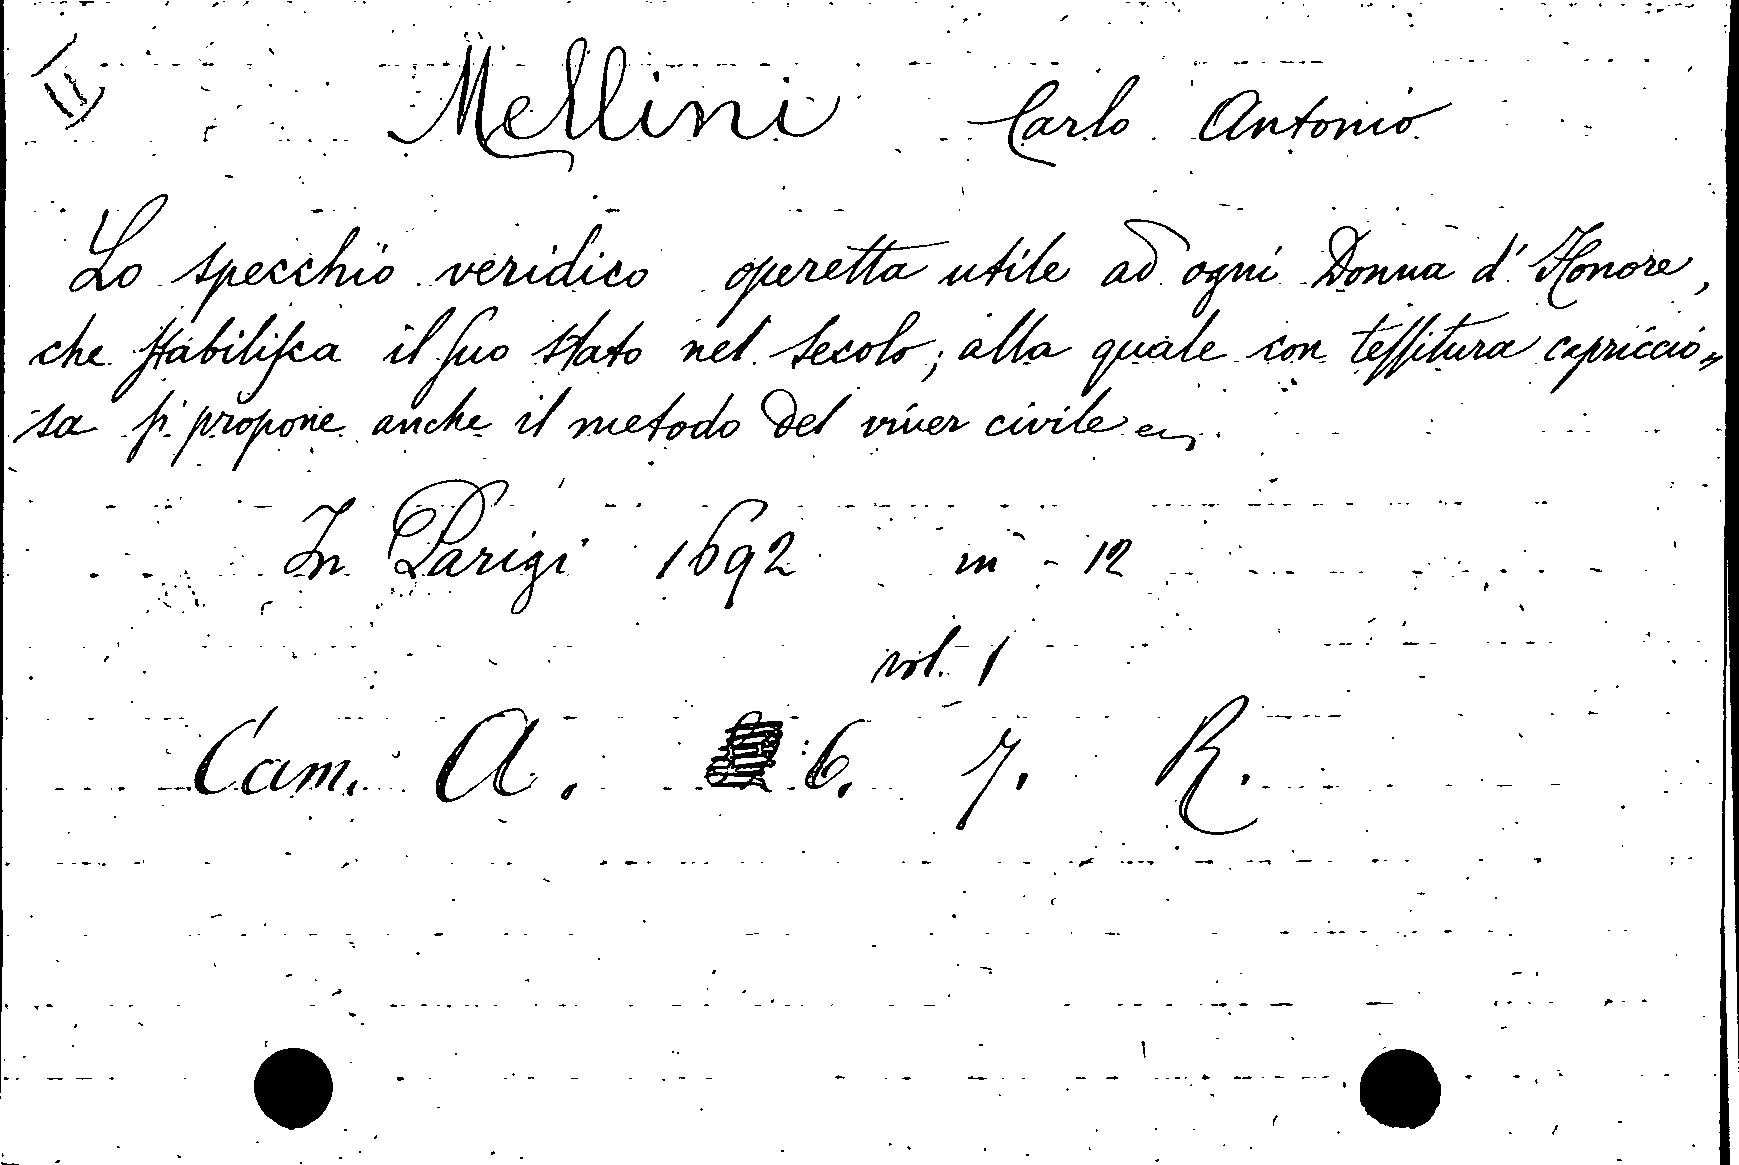 II
Mellini Carlo Antonio
Lo specchio veridico operetta utile ad ogni Donna d' Honore,
che ſtabiliſca il ſuo stato nel secolo; alla quale con teſſitura capriccio„
sa ſi propone anche il metodo del viver civile
In Parigi 1692 in - 12
vol. 1
Cam. A. 6. 7. R.